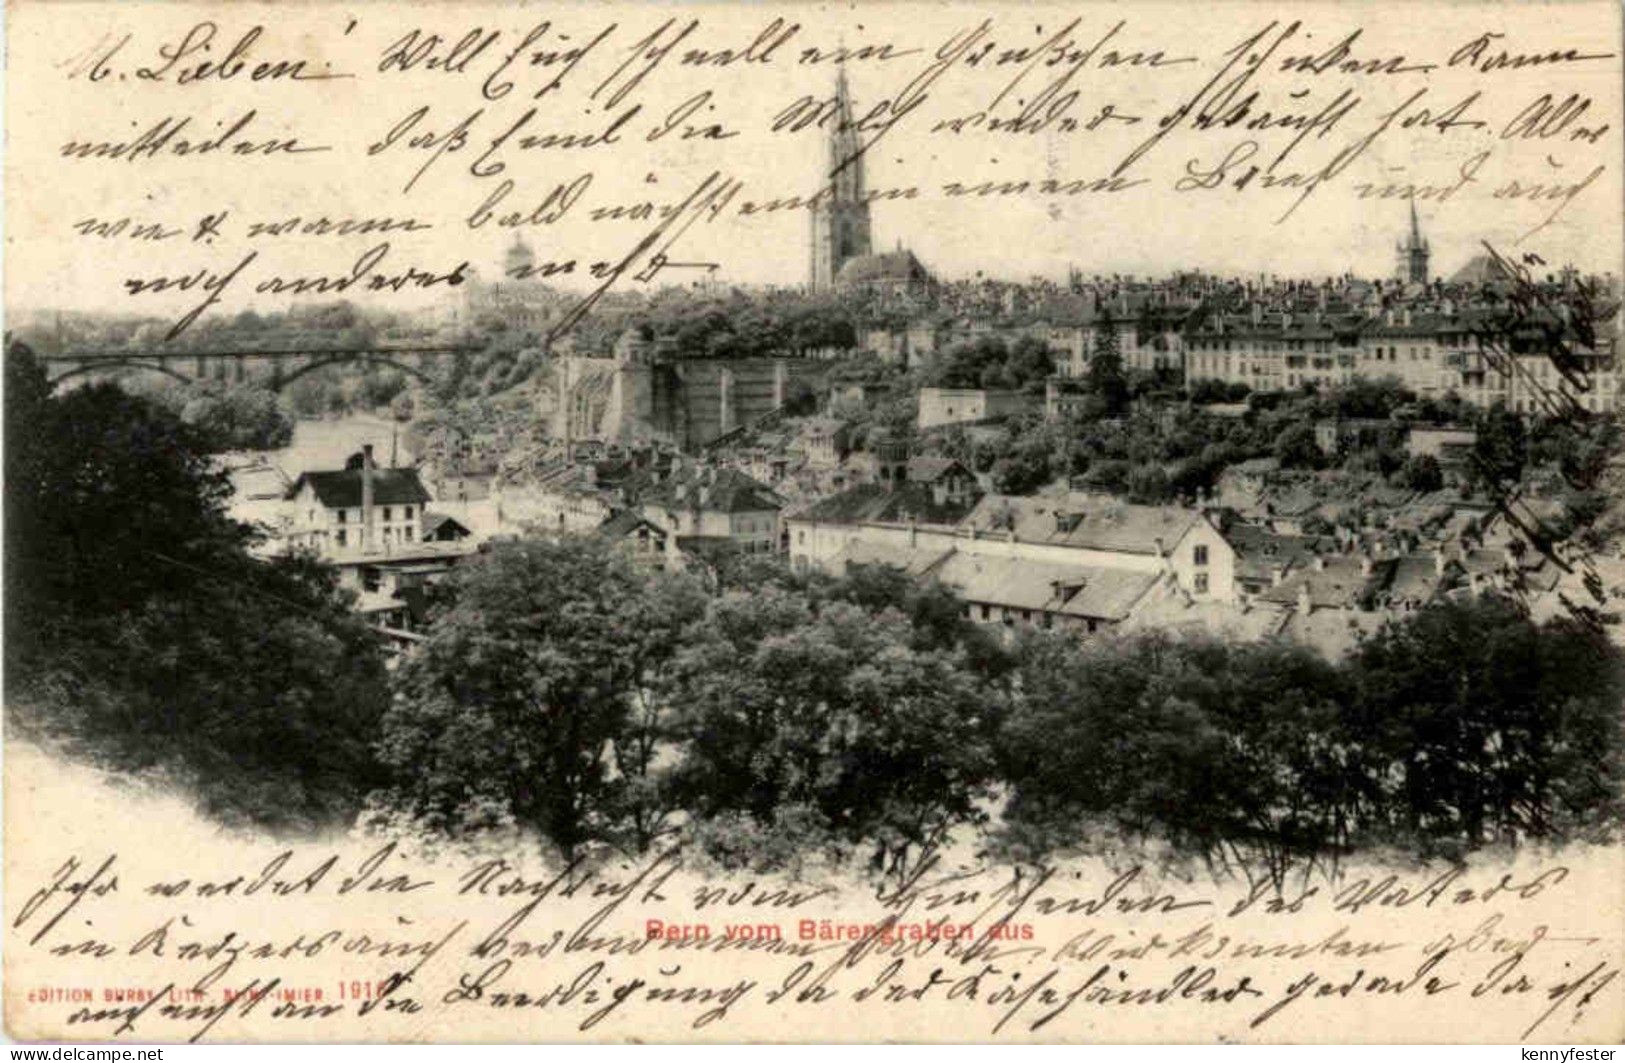 M. Lieben! Will Euch schnell ein Grüßchen schicken. Kann
mitteilen daß Emil die Milch wieder gekauft hat. Alles
wie & wann bald nächstens in einem Brief und auch
noch anderes mehr
Ihr werdet die Nachricht vom Hinscheiden des Vaters
Bern vom Bärengraben aus
in Kerzers auch vernommen haben. Wir konnten aber
EDITION BURGY LITH. SAINT-IMIER 191
auch nicht an die Beerdigung da der Käsehändler gerade da ist
delcampe.net
kennyfester